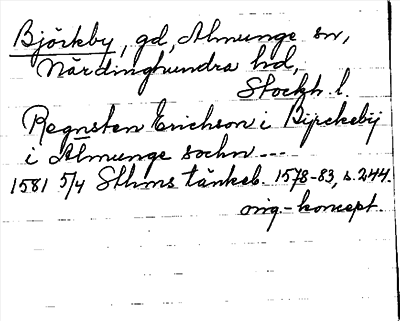 Björkby, gd, Almunge sn,
Närdinghundra hd,
Stockh. l.
Regnsten Erichson i Byrckeby
i Almunge sochn ---
1581 5/4 Sthms tänkeb. 1578-83, s. 244.
orig.-koncept.